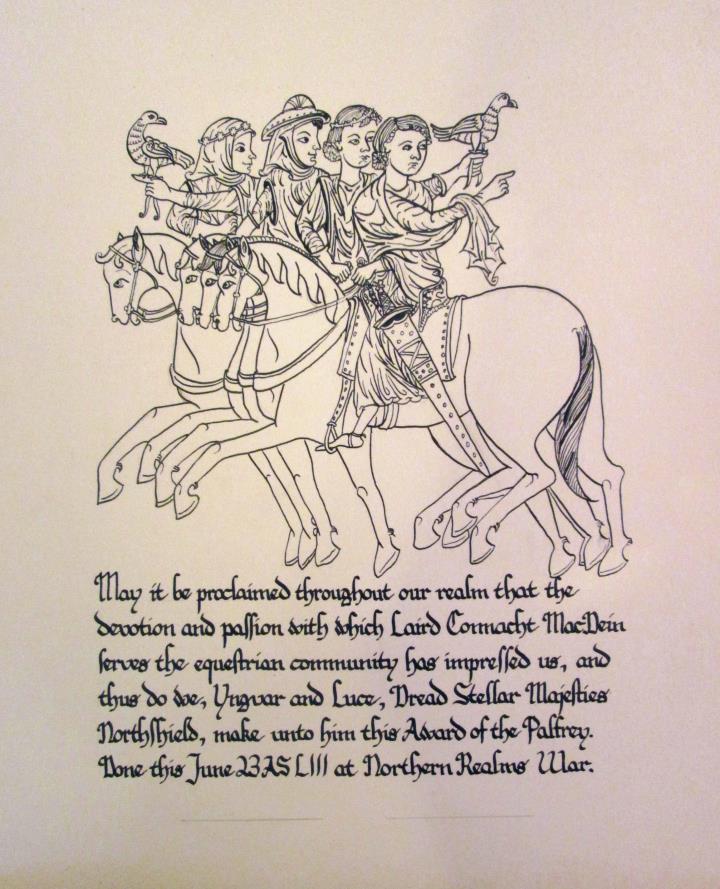 May it be proclaimed throughout our realm that the
devotion and passion with which Laird Connacht MacDein
serves the equestrian community has impressed us, and
thus do we, Yngvar and Luce, Dread Stellar Majesties
Northshield, make unto him this Award of the Palfrey.
Done this June 23 AS LIII at Northern Realms War.